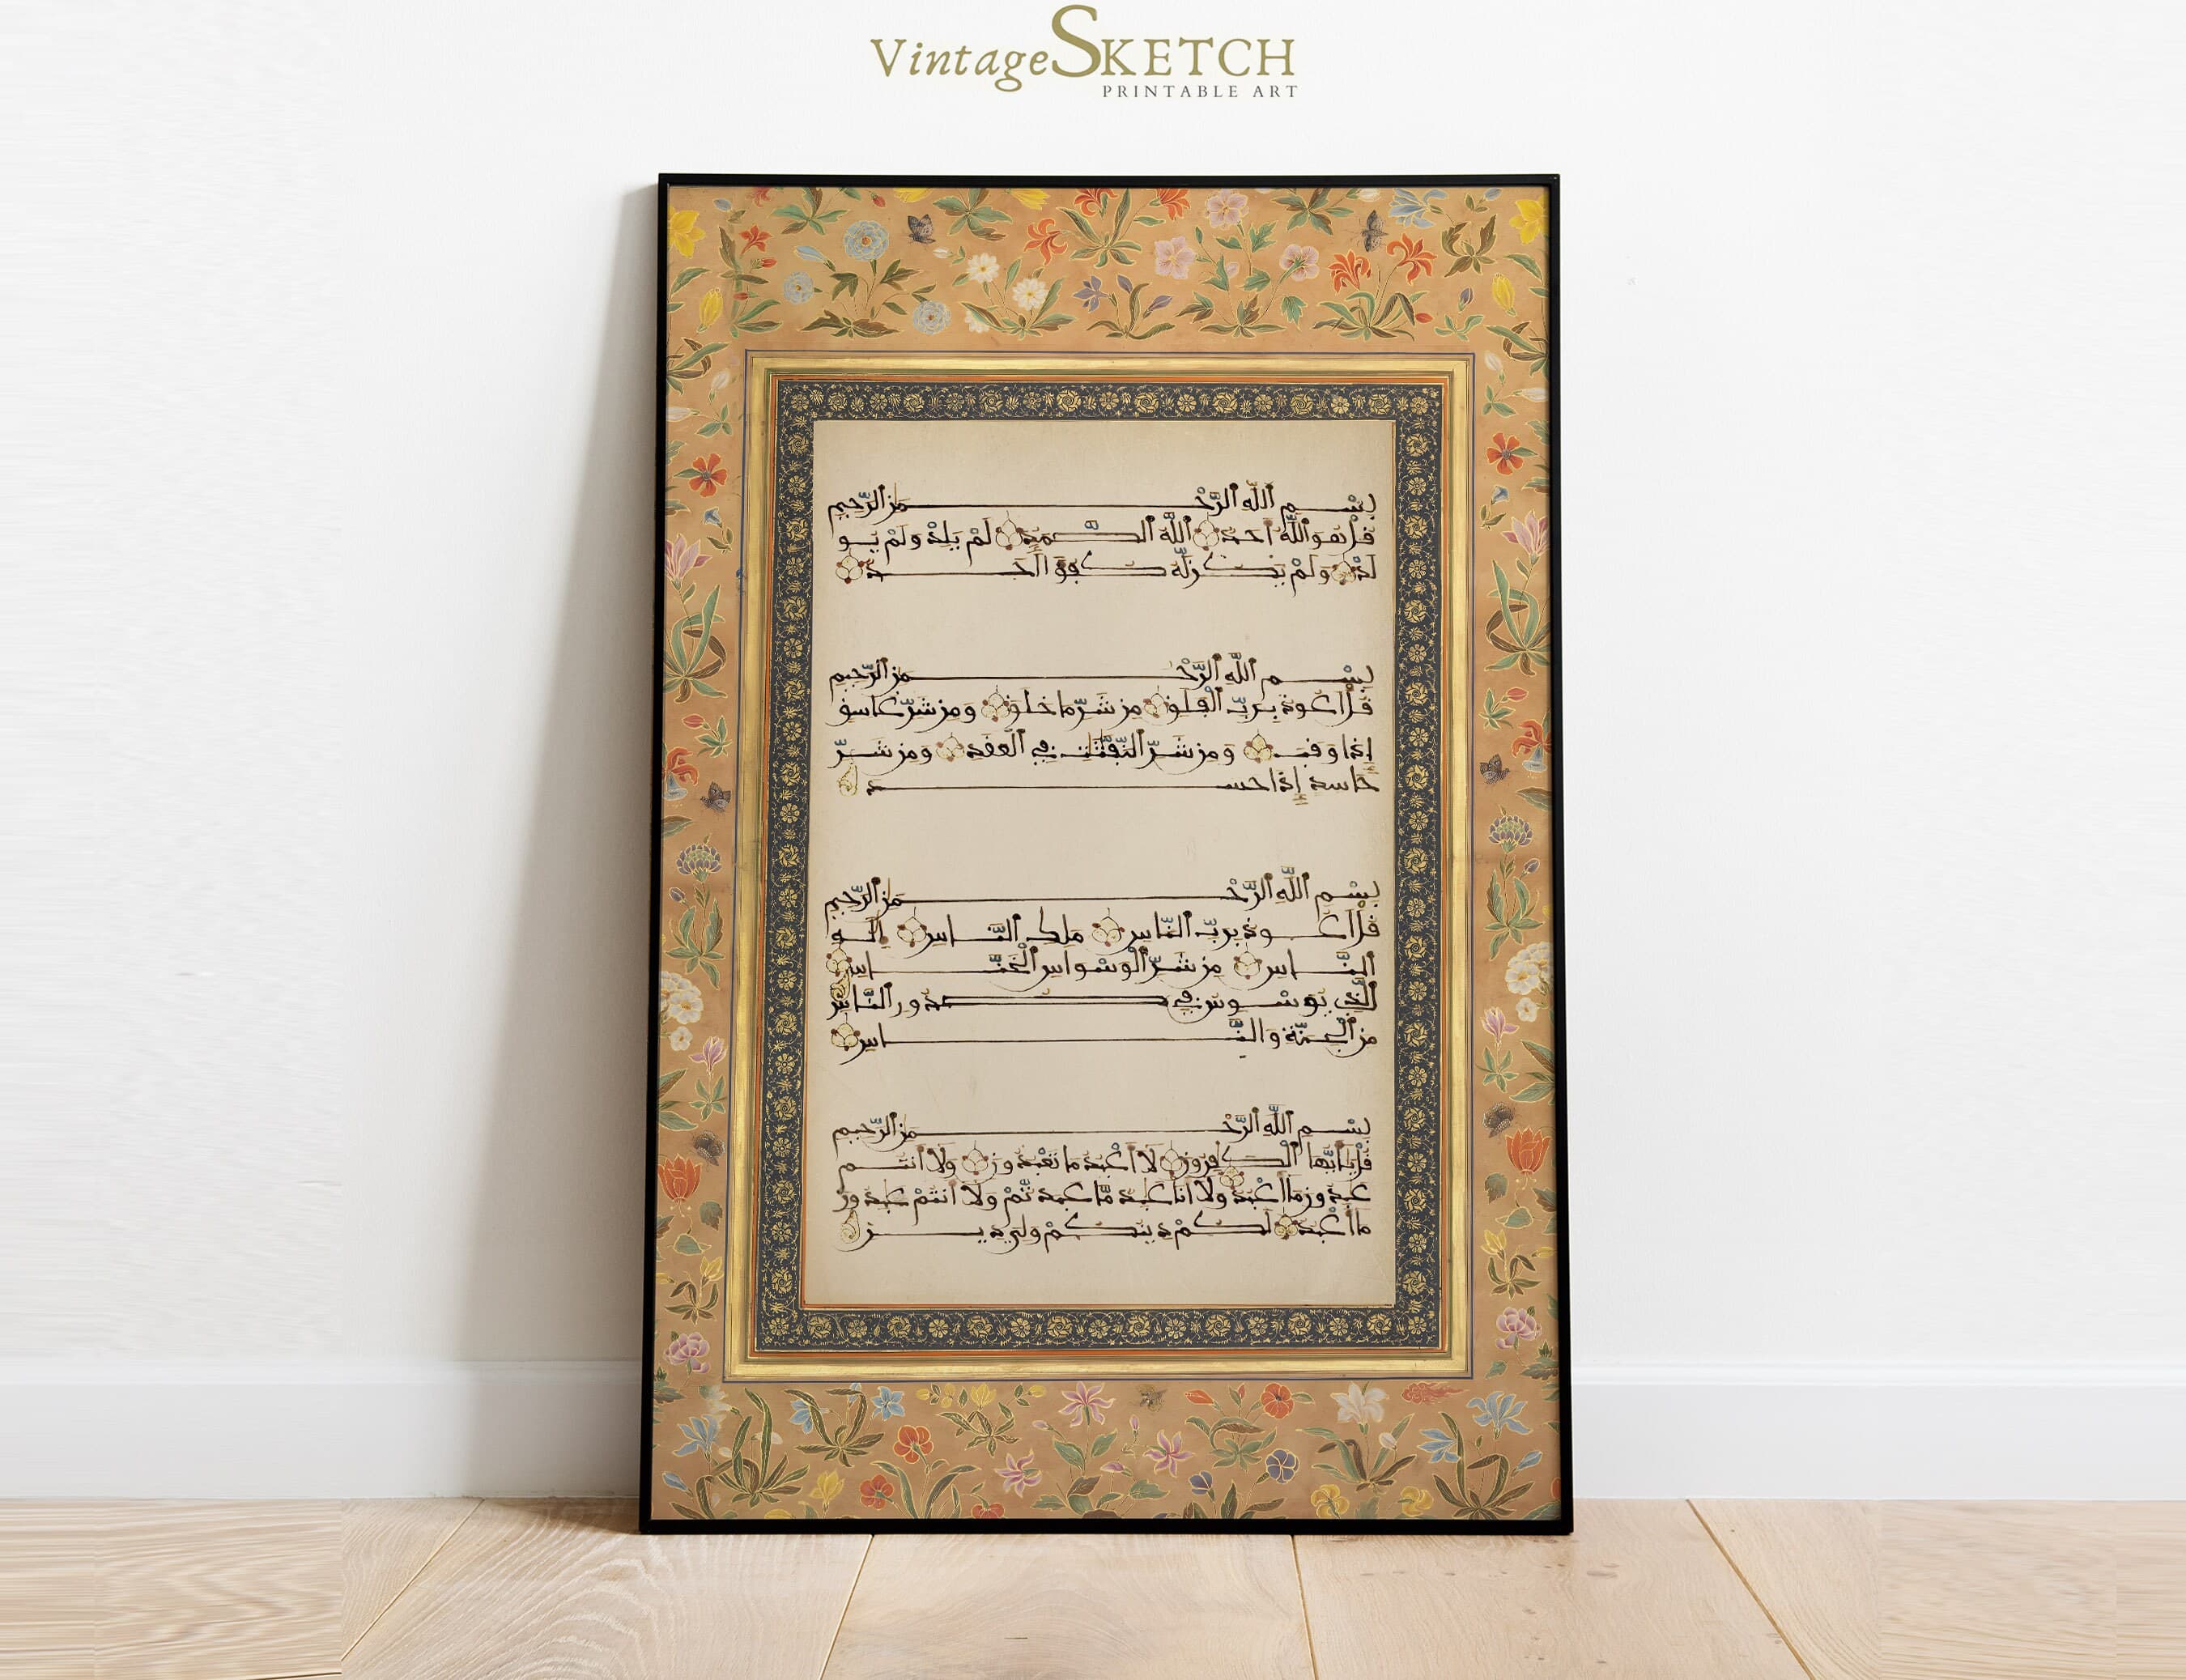 VintageSKETCH
PRINTABLE ART
بسم الله الرحمن الرحيم
قل هو الله احد الله الصمد لم يلد ولم يو
لد ولم يكن له كفوا احد
بسم الله الرحمن الرحيم
قل اعوذ برب الفلق من شر ما خلق ومن شر غاسق
إذا وقب ومن شر النفثت في العقد ومن شر
حاسد إذا حسد
بسم الله الرحمن الرحيم
قل اعوذ برب الناس ملك الناس إله
الناس من شر الوسواس الخناس
الذي يوسوس في صدور الناس
من الجنة والناس
بسم الله الرحمن الرحيم
قل يا أيها الكفرون لا أعبد ما تعبدون ولا انتم
عبدون ما أعبد ولا انا عابد ما عبدتم ولا انتم عبدون
ما أعبد لكم دينكم ولي دين